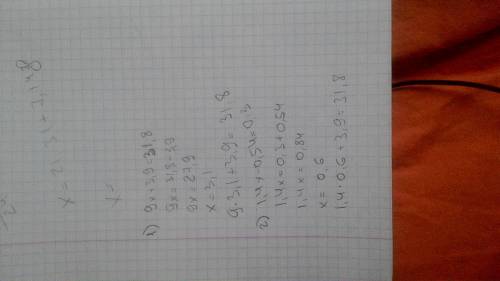 x = 2
x =
1) 9x+3,9=31,8
9x=31,8-3,9
9x=27,9
x=3,1
9·3,1+3,9=31,8
2) 1,4x-0,54=0,3
1,4x=0,3+0,54
1,4x=0,84
x=0,6
1,4·0,6+3,9=31,8